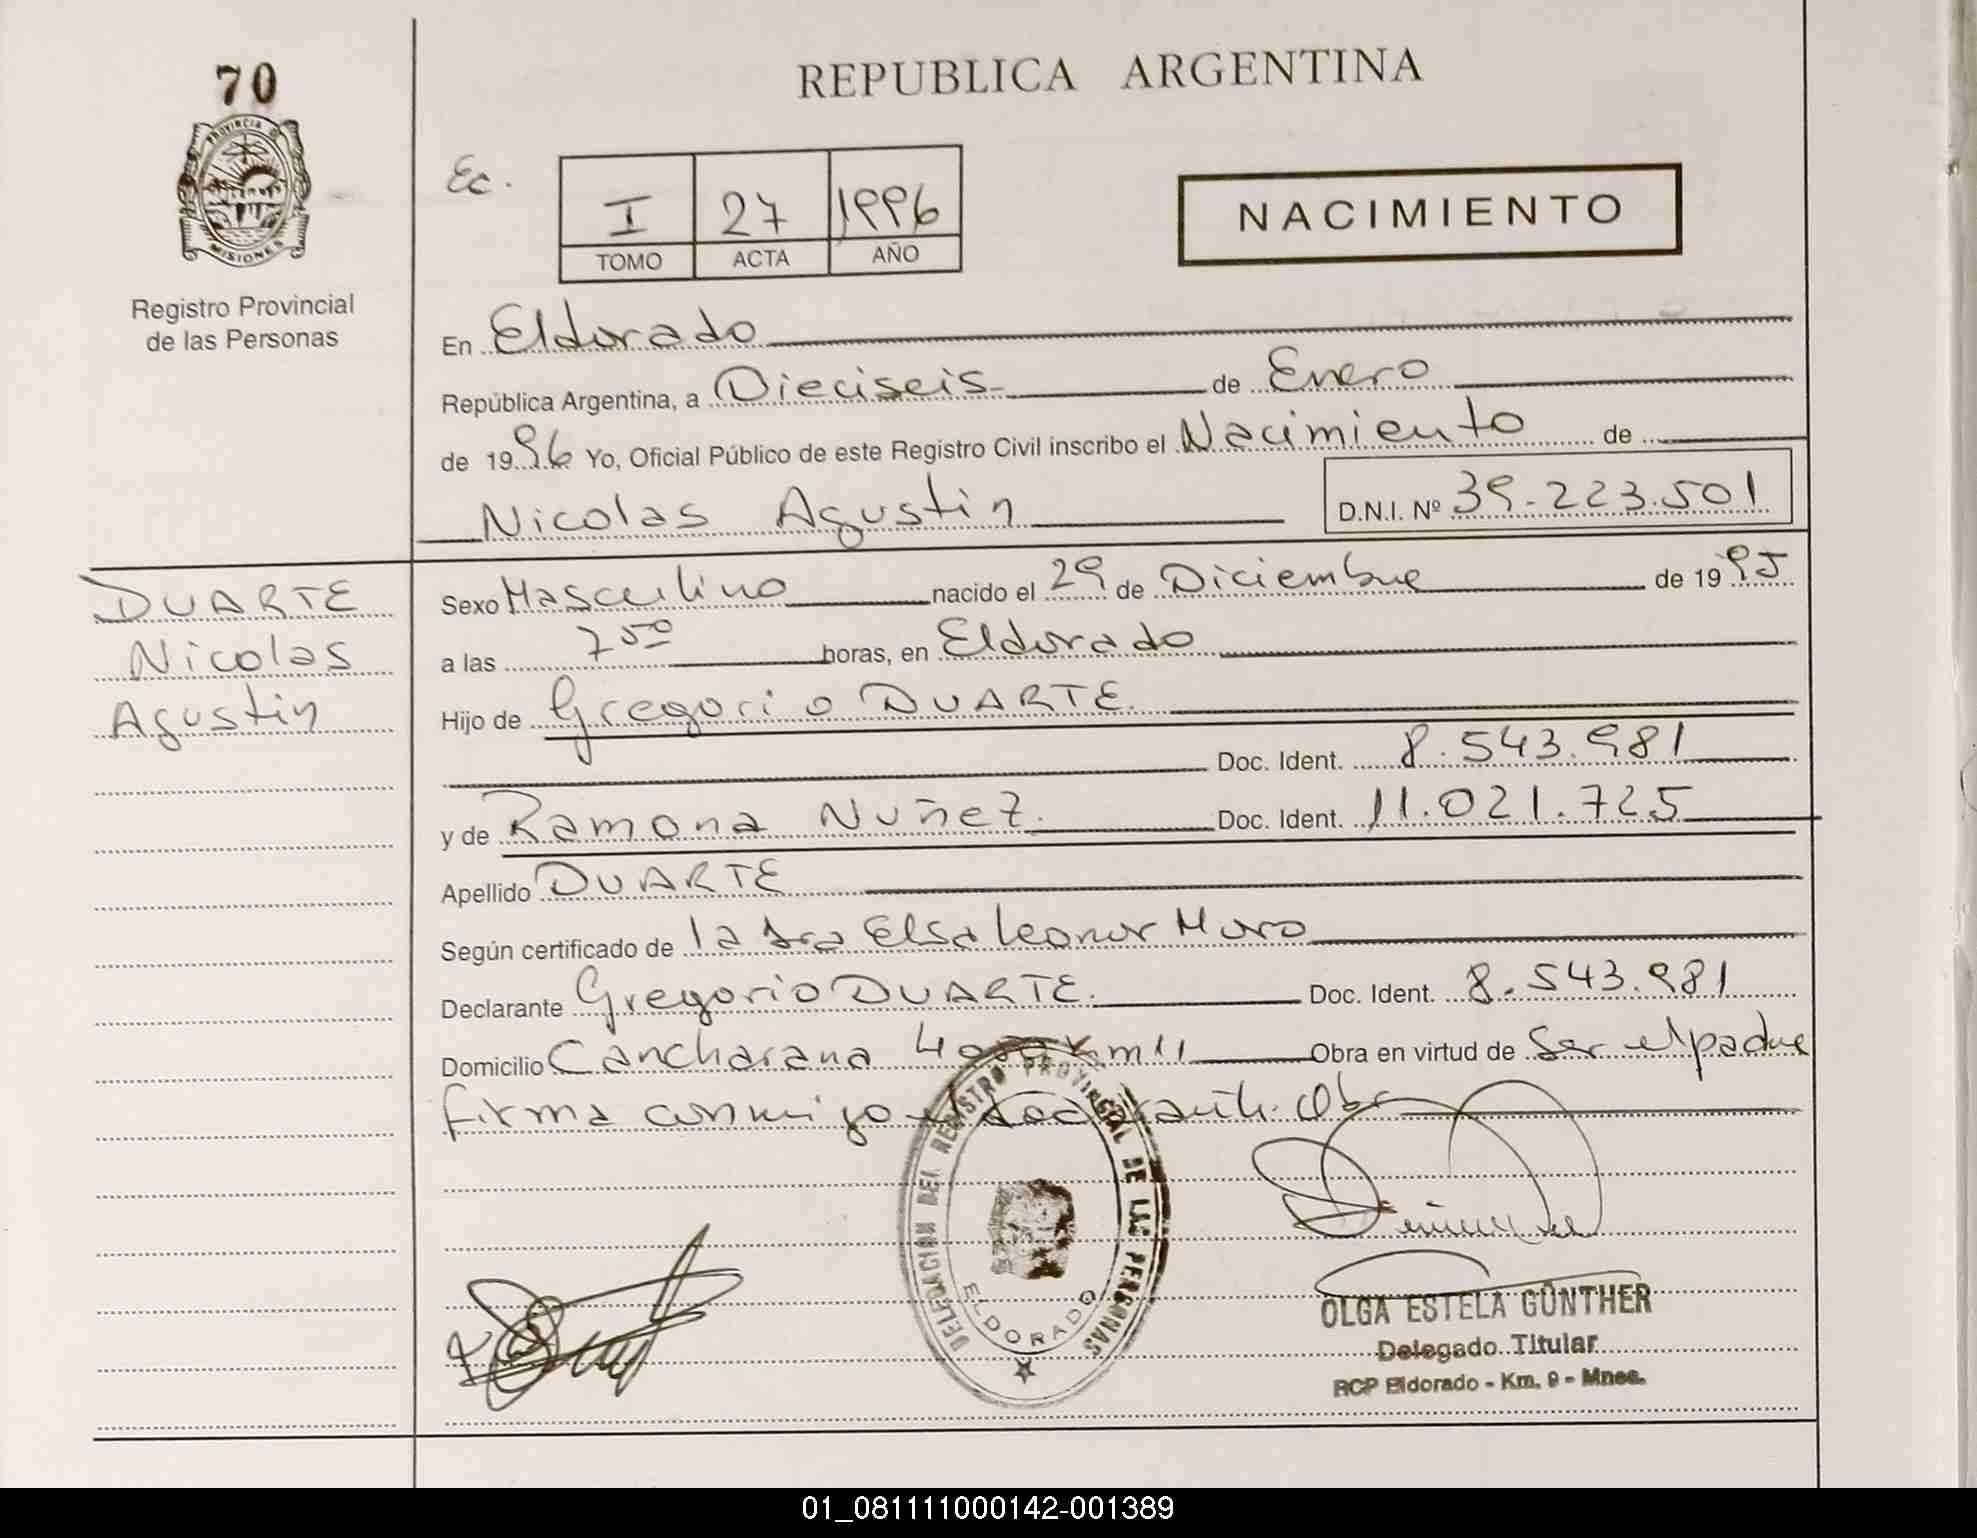 70
REPUBLICA ARGENTINA
PROVINCIA DE
MISIONES
Registro Provincial
de las Personas
Ec.
I 27 1996
TOMO ACTA AÑO
NACIMIENTO
En Eldorado
República Argentina, a Dieciseis de Enero
de 1996 Yo, Oficial Público de este Registro Civil inscribo el Nacimiento de
Nicolas Agustin D.N.I. Nº 39.223.501
DUARTE
Nicolas
Agustin
Sexo Masculino nacido el 29 de Diciembre de 1995
a las 7 50 horas, en Eldorado
Hijo de Gregorio DUARTE.
Doc. Ident. 8.543.981
y de Ramona Nuñez. Doc. Ident. 11.021.725
Apellido DUARTE
Según certificado de la Dra Elsa Leonor Muro
Declarante Gregorio DUARTE. Doc. Ident. 8.543.981
Domicilio Cancharana Km 11 Obra en virtud de Ser el padre
firma conmigo el
DELEGACION DEL REGISTRO PROVINCIAL DE LAS PERSONAS
ELDORADO
OLGA ESTELA GÜNTHER
Delegado Titular
RCP Eldorado - Km. 9 - Mnes.
01_081111000142-001389